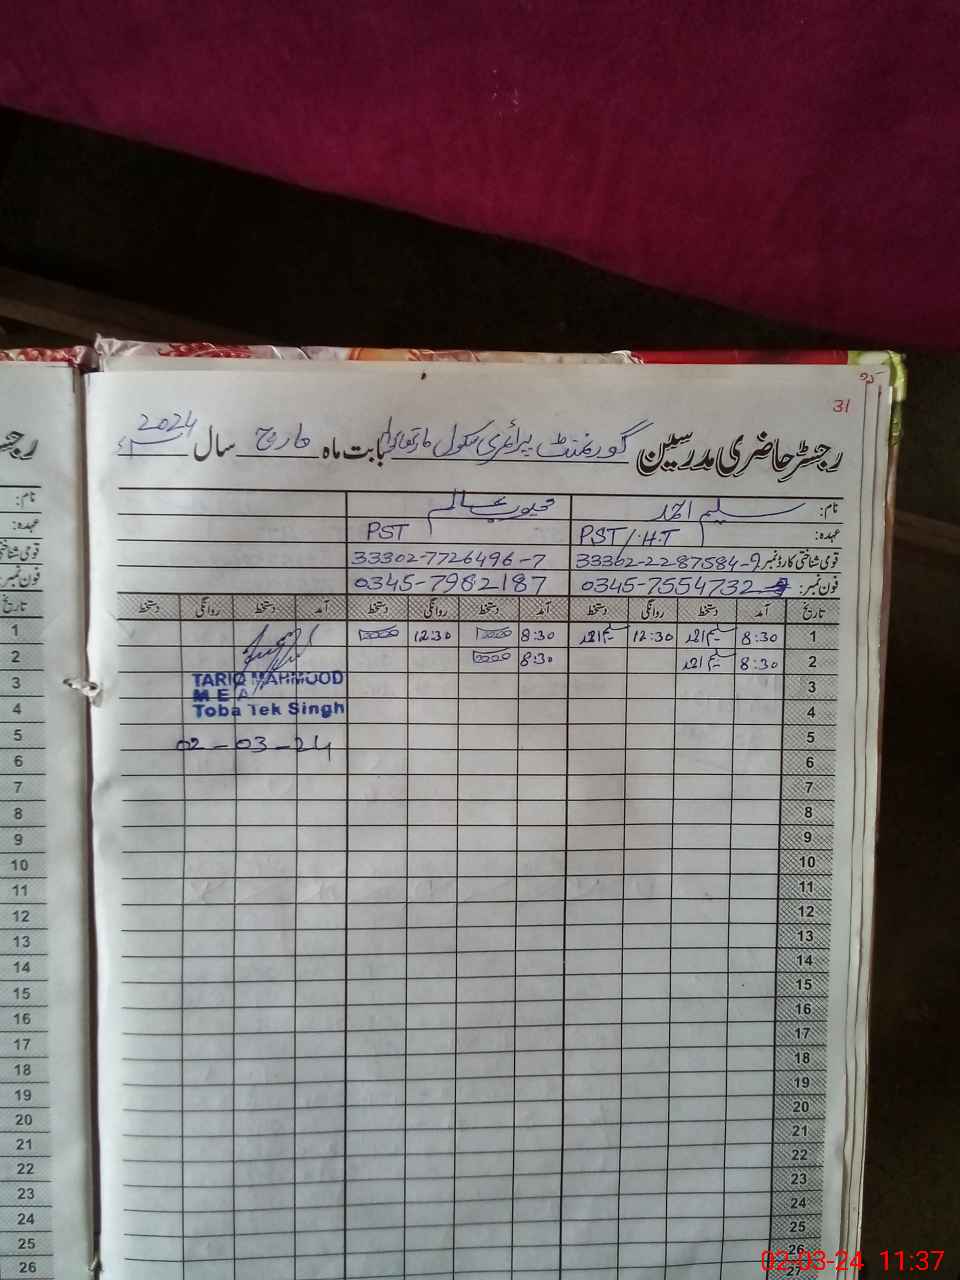 31
رجسٹر حاضری مدرسین گورنمنٹ پرائمری سکول بابت ماہ مارچ سال 2024ء
نام: سلیم احمد محبوب عالم
عہدہ: PST/H.T PST
قومی شناختی کارڈ نمبر 33302-2287584-9 33302-7726496-7
فون نمبر: 0345-7554732 0345-7982187
تاریخ آمد دستخط روانگی دستخط آمد دستخط روانگی دستخط آمد دستخط روانگی دستخط
1 8:30 سلیم احمد 12:30 سلیم احمد 8:30 12:30
2 8:30 سلیم احمد 8:30
3
4
5
6
7
8
9
10
11
12
13
14
15
16
17
18
19
20
21
22
23
24
25
26
27
TARIQ MAHMOOD
M E A
Toba Tek Singh
02-03-24
رجسٹ
نام:
عہدہ:
قومی شناختی
فون نمبر:
تاریخ
1
2
3
4
5
6
7
8
9
10
11
12
13
14
15
16
17
18
19
20
21
22
23
24
25
26
02-03-24 11:37